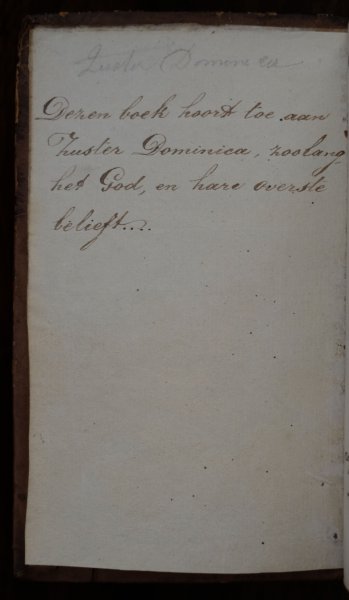 Zuster Dominica
Dezen boek hoort toe aan
Zuster Dominica, zoolang
het God, en hare overste
belieft....